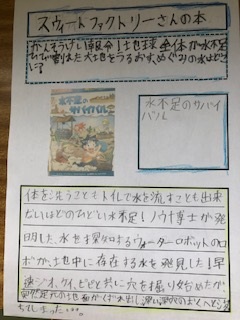 スウィートファクトリーさんの本
かんそうけいほう発令！地球全体が水不足
でひび割れた大地をうるおすめぐみの水はどこ
に？
水不足の
サバイバル
水不足のサバイ
バル
体を洗うこともトイレで水を流すことも出来
ないほどのひどい水不足！ノウ博士が発
明した、水を探知するウォーターロボットのロ
ボが、地中に存在する水を発見した！早
速ジオ、ケイ、ピピとボに穴を掘り始めたが
突然足元の地面がくずれ出し、深い穴のおくへと落
ちてしまった…。